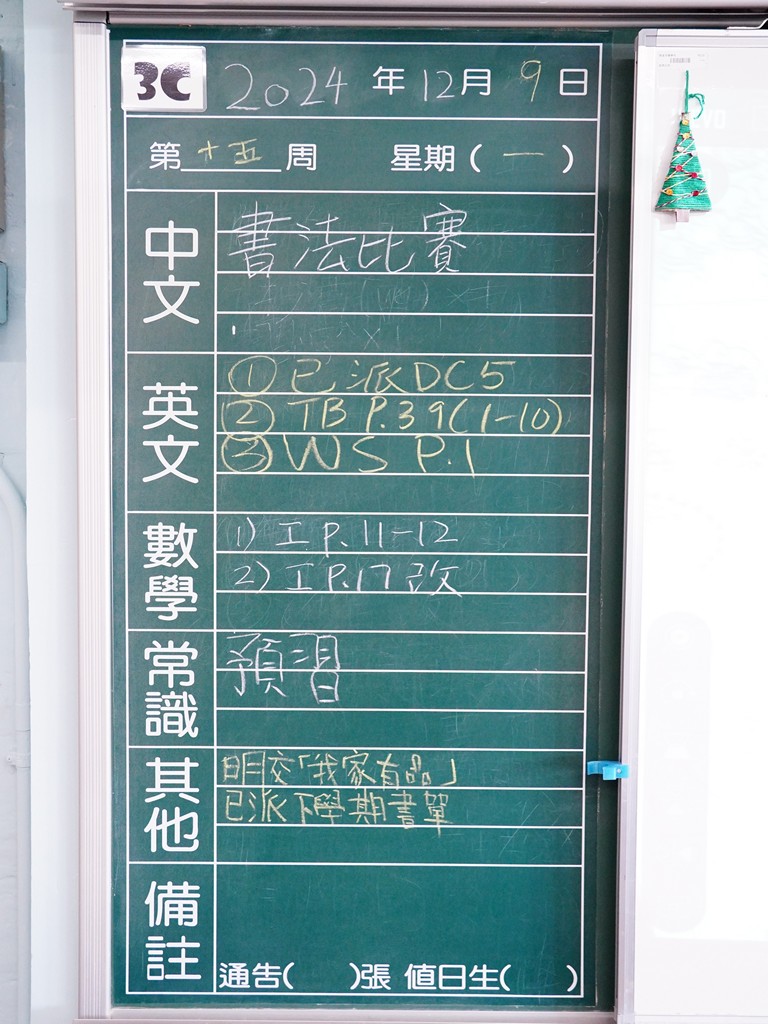 3C 2024年12月9日
第十五周 星期(一)
中文
書法比賽
英文
① 已派DC5
② TB P.39(1-10)
③ WS P.1
數學
1) 工 P.11-12
2) 工 P.17 改
常識
預習
其他
明交「我家有品」
已派下學期書單
備註
通告( )張 值日生( )